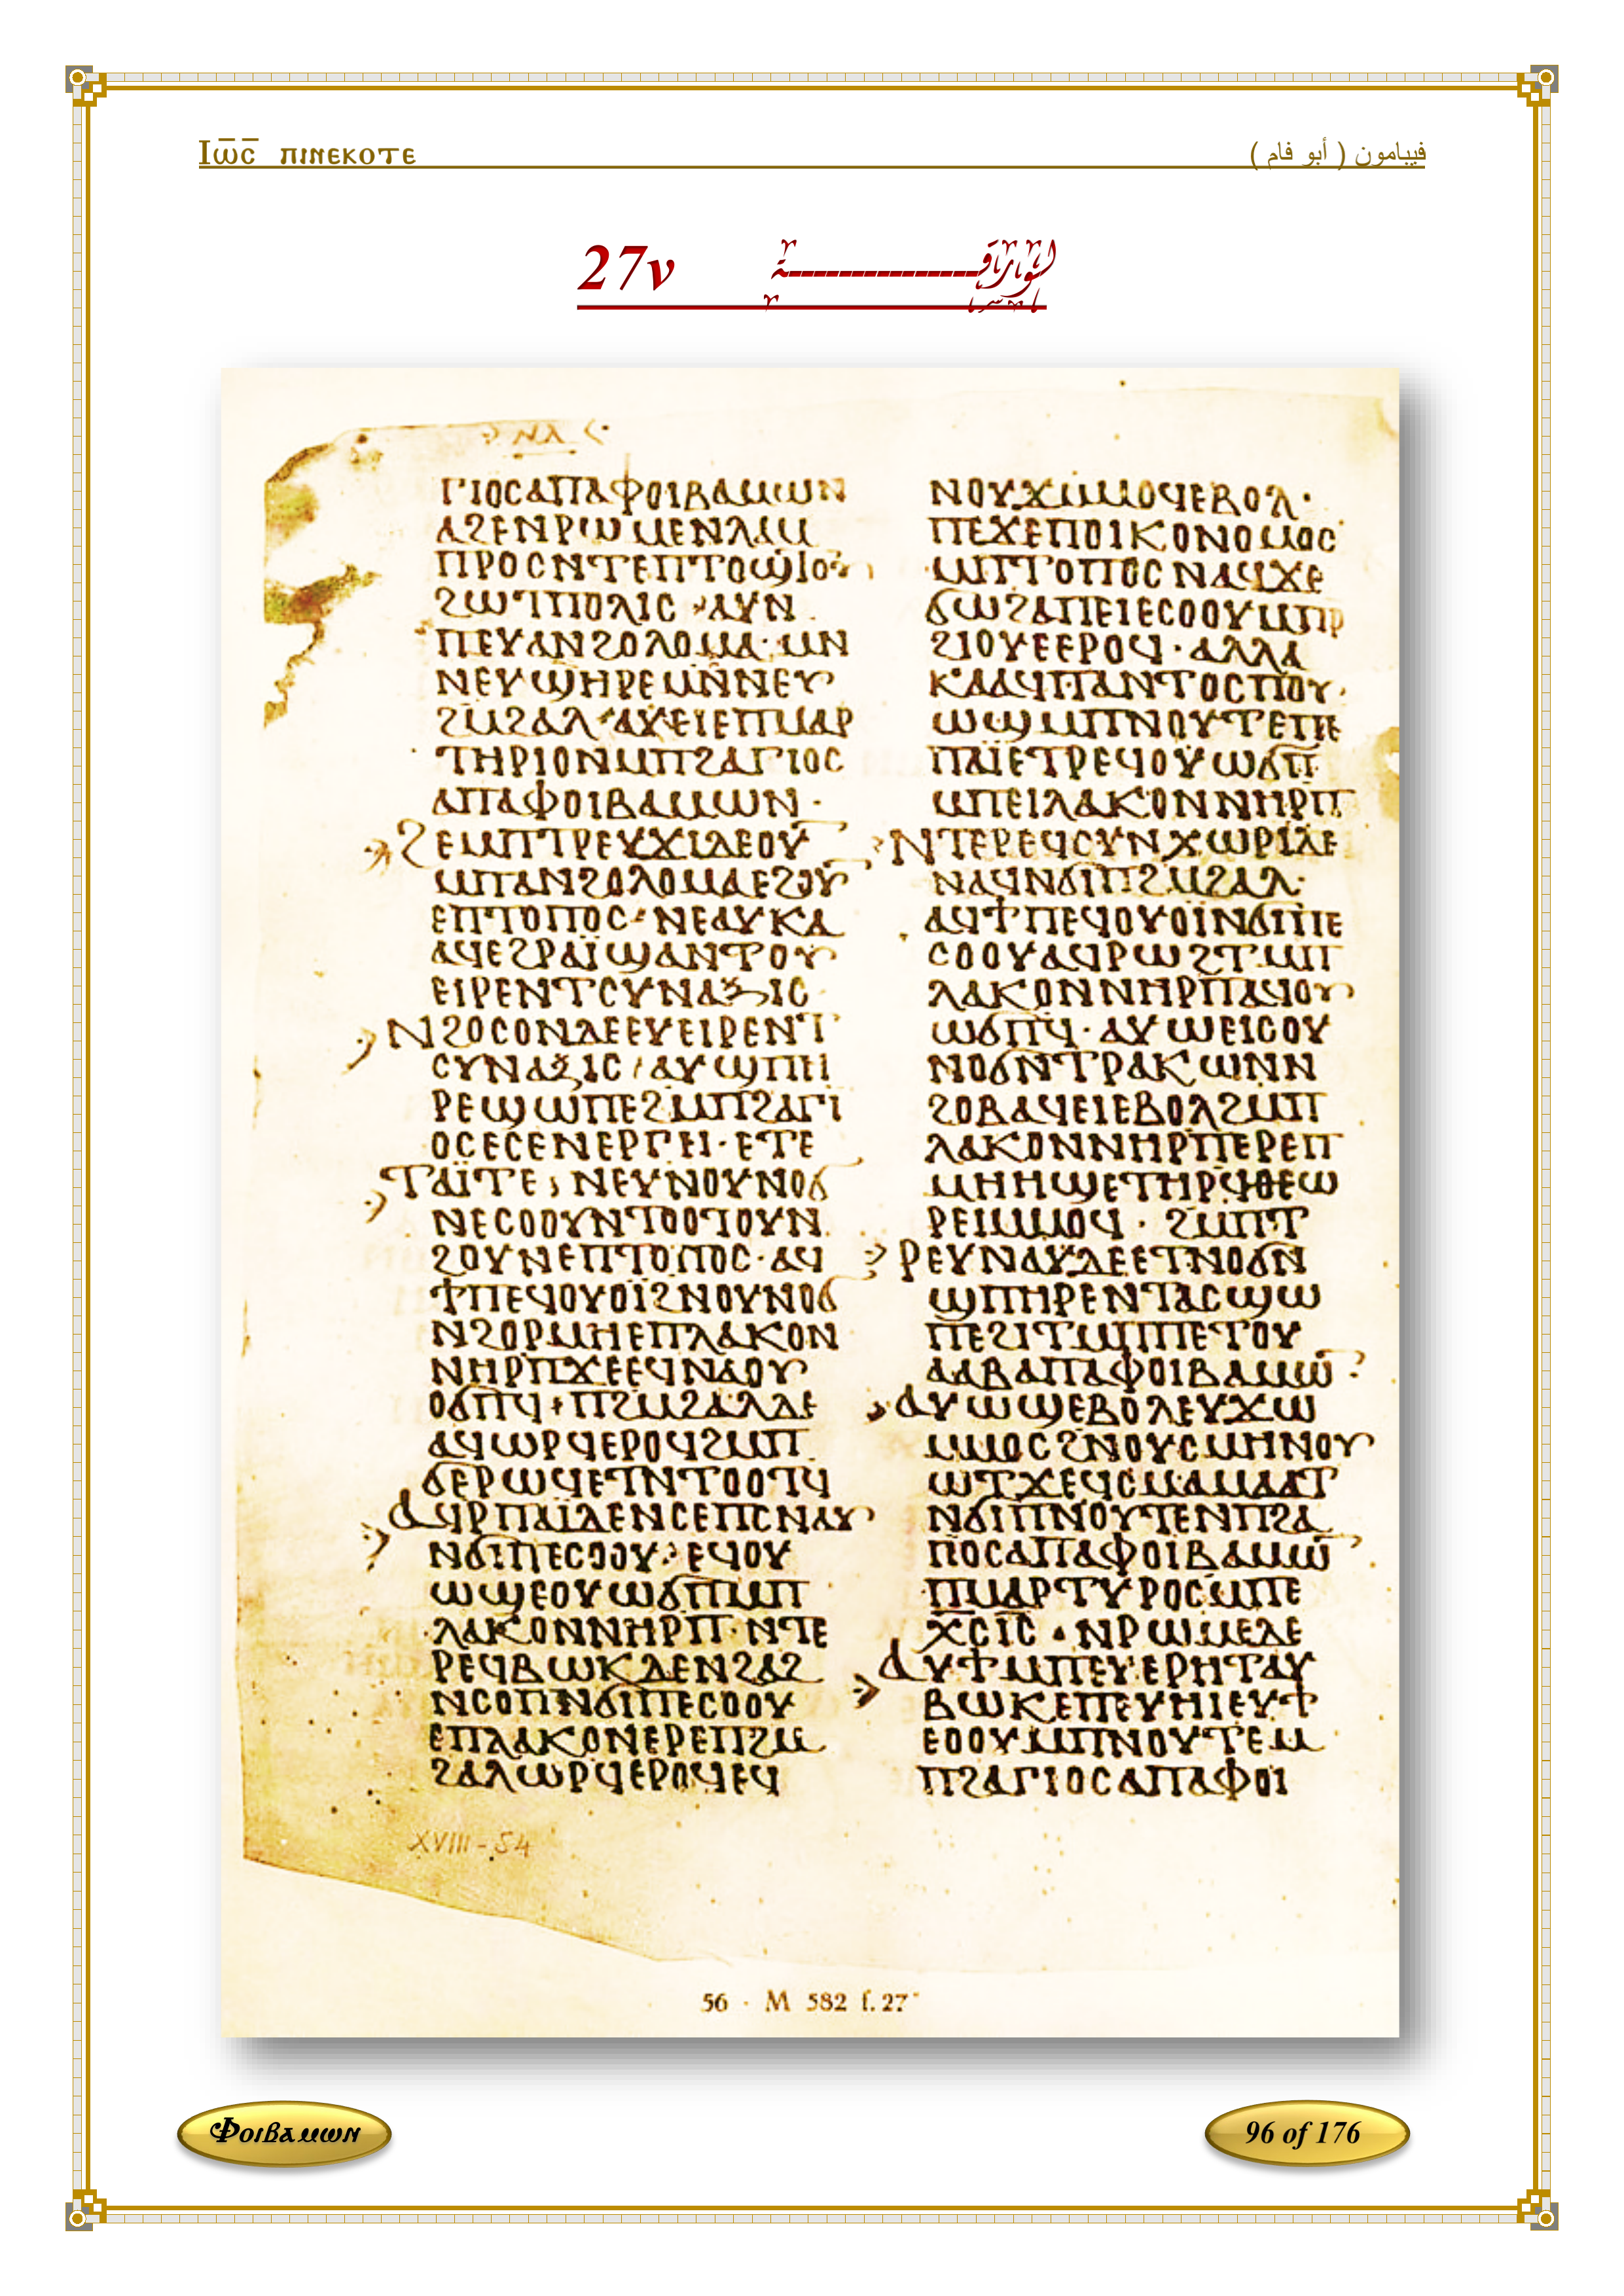 Ⲓⲱ̅ⲥ̅ ⲡⲓⲛⲉⲕⲟⲧⲉ
فيبامون ( أبو فام )
27v الورقـــة
ⲛⲇ
ⲅⲓⲟⲥⲁⲡⲁⲫⲟⲓⲃⲁⲙⲱⲛ
ⲁϩⲉⲛⲣⲱⲙⲉⲛⲗⲁⲙ
ⲡⲣⲟⲥⲛⲧⲉⲡⲧⲟϣ
ⲡⲟⲗⲓⲥ ⲁⲩⲛ
ⲡⲉⲩⲁⲛϩⲟⲗⲟⲙⲁ·ⲙⲛ
ⲛⲉⲩϣⲏⲣⲉⲙⲛⲛⲉⲩ
ϩⲙϩⲁⲗ·ⲁⲩⲉⲓⲉⲡⲙⲁⲣ
ⲧⲏⲣⲓⲟⲛⲙⲡϩⲁⲅⲓⲟⲥ
ⲁⲡⲁⲫⲟⲓⲃⲁⲙⲱⲛ·
ϩⲉⲙⲡⲧⲣⲉⲩϫⲓⲇⲉⲟⲩ
ⲙⲡⲁⲛϩⲟⲗⲟⲙⲁⲉϩⲟⲩ
ⲉⲡⲧⲟⲡⲟⲥ·ⲛⲉⲁⲩⲕⲁ
ⲁϥⲉϩⲣⲁⲓ̈ϣⲁⲛⲧⲟⲩ
ⲉⲓⲣⲉⲛⲧⲥⲩⲛⲁⲝⲓⲥ
ⲛϩⲟⲥⲟⲛⲇⲉⲉⲩⲉⲓⲣⲉⲛⲧ
ⲥⲩⲛⲁⲝⲓⲥ/ⲁⲩϣⲡⲏ
ⲣⲉϣⲱⲡⲉϩⲙⲡϩⲁⲅⲓ
ⲟⲥⲉⲥⲉⲛⲉⲣⲅⲉⲓ·ⲉⲧⲉ
ⲧⲁⲓ̈ⲧⲉ·ⲛⲉⲩⲛⲟⲩⲛⲟϭ
ⲛⲉⲥⲟⲟⲩⲛⲧⲟⲟⲧⲟⲩⲛ
ϩⲟⲩⲛⲉⲡⲧⲟⲡⲟⲥ·ⲁϥ
ϯⲡⲉϥⲟⲩⲟⲓ̈ϩⲛⲟⲩⲛⲟϭ
ⲛϩⲟⲣⲙⲏⲉⲡⲗⲁⲕⲟⲛ
ⲛⲏⲣⲡϫⲉⲉϥⲛⲁⲟⲩ
ⲟϭⲡϥ·ⲡϩⲙϩⲁⲗⲇⲉ
ⲁϥⲱⲣϥⲉⲣⲟϥϩⲙⲡ
ϭⲉⲣⲱϥⲉⲧⲛⲧⲟⲟⲧϥ
ⲁϥⲣⲡⲁⲓ̈ⲇⲉⲛⲥⲉⲡⲥⲛⲁⲩ
ⲛϭⲓⲡⲉⲥⲟⲟⲩ·ⲉϥⲟⲩ
ⲱϣⲉⲟⲩⲱϭⲡⲙⲡ
ⲗⲁⲕⲟⲛⲛⲏⲣⲡ·ⲛⲧⲉ
ⲣⲉϥⲃⲱⲕⲇⲉⲛϩⲁϩ
ⲛⲥⲟⲡⲛϭⲓⲡⲉⲥⲟⲟⲩ
ⲉⲡⲗⲁⲕⲟⲛⲉⲣⲉⲡϩⲙ
ϩⲁⲗⲱⲣϥⲉⲣⲟϥⲉϥ
ⲛⲟⲩϫⲙⲙⲟϥⲉⲃⲟⲗ·
ⲡⲉϫⲉⲡⲟⲓⲕⲟⲛⲟⲙⲟⲥ
ⲙⲡⲧⲟⲡⲟⲥⲛⲁϥϫⲉ
ϭⲱϩⲁⲡⲉⲓⲉⲥⲟⲟⲩⲙⲡⲣ
ϩⲓⲟⲩⲉⲉⲣⲟϥ·ⲁⲗⲗⲁ
ⲕⲁⲁϥⲡⲁⲛⲧⲟⲥⲡⲟⲩ
ⲱϣⲙⲡⲛⲟⲩⲧⲉⲡⲉ
ⲡⲁⲓ̈ⲉⲧⲣⲉϥⲟⲩⲱϭⲡ
ⲙⲡⲉⲓⲗⲁⲕⲟⲛⲛⲏⲣⲡ
ⲛⲧⲉⲣⲉϥⲥⲩⲛⲭⲱⲣⲓⲇⲉ
ⲛⲁϥⲛϭⲓⲡϩⲙϩⲁⲗ·
ⲁϥϯⲡⲉϥⲟⲩⲟⲓ̈ⲛϭⲓⲡⲉ
ⲥⲟⲟⲩⲁϥⲣⲱϩⲧⲙⲡ
ⲗⲁⲕⲟⲛⲛⲏⲣⲡⲁϥⲟⲩ
ⲱϭⲡϥ·ⲁⲩⲱⲉⲓⲥⲟⲩ
ⲛⲟϭⲛⲧⲣⲁⲕⲱⲛⲛ
ϩⲟⲃⲁϥⲉⲓⲉⲃⲟⲗϩⲙⲡ
ⲗⲁⲕⲟⲛⲛⲏⲣⲡⲉⲣⲉⲡ
ⲙⲏⲏϣⲉⲧⲏⲣϥⲑⲉⲱ
ⲣⲉⲓⲙⲙⲟϥ·ϩⲙⲡⲧ
ⲣⲉⲩⲛⲁⲩⲇⲉⲉⲧⲛⲟϭⲛ
ϣⲡⲏⲣⲉⲛⲧⲁⲥϣⲱ
ⲡⲉϩⲓⲧⲙⲡⲡⲉⲧⲟⲩ
ⲁⲁⲃⲁⲡⲁⲫⲟⲓⲃⲁⲙⲱ̅·
ⲁⲩⲱϣⲉⲃⲟⲗⲉⲩϫⲱ
ⲙⲙⲟⲥϩⲛⲟⲩⲥⲙⲏⲛⲟⲩ
ⲱⲧϫⲉϥⲥⲙⲁⲙⲁⲁⲧ
ⲛϭⲓⲡⲛⲟⲩⲧⲉⲛⲡϩⲁ
ⲅⲓⲟⲥⲁⲡⲁⲫⲟⲓⲃⲁⲙⲱ̅
ⲡⲙⲁⲣⲧⲩⲣⲟⲥⲙⲡⲉ
ⲭ̅ⲥ̅ⲓ̅ⲥ̅·ⲛⲣⲱⲙⲉⲇⲉ
ⲁⲩϯⲙⲡⲉⲩⲉⲣⲏⲧⲁⲩ
ⲃⲱⲕⲉⲡⲉⲩⲏⲓⲉⲩϯ
ⲉⲟⲟⲩⲙⲡⲛⲟⲩⲧⲉⲙ
ⲡϩⲁⲅⲓⲟⲥⲁⲡⲁⲫⲟⲓ
XVIII-54
56 · M 582 f. 27ᵛ
Ⲫⲟⲓⲃⲁⲙⲱⲛ
96 of 176